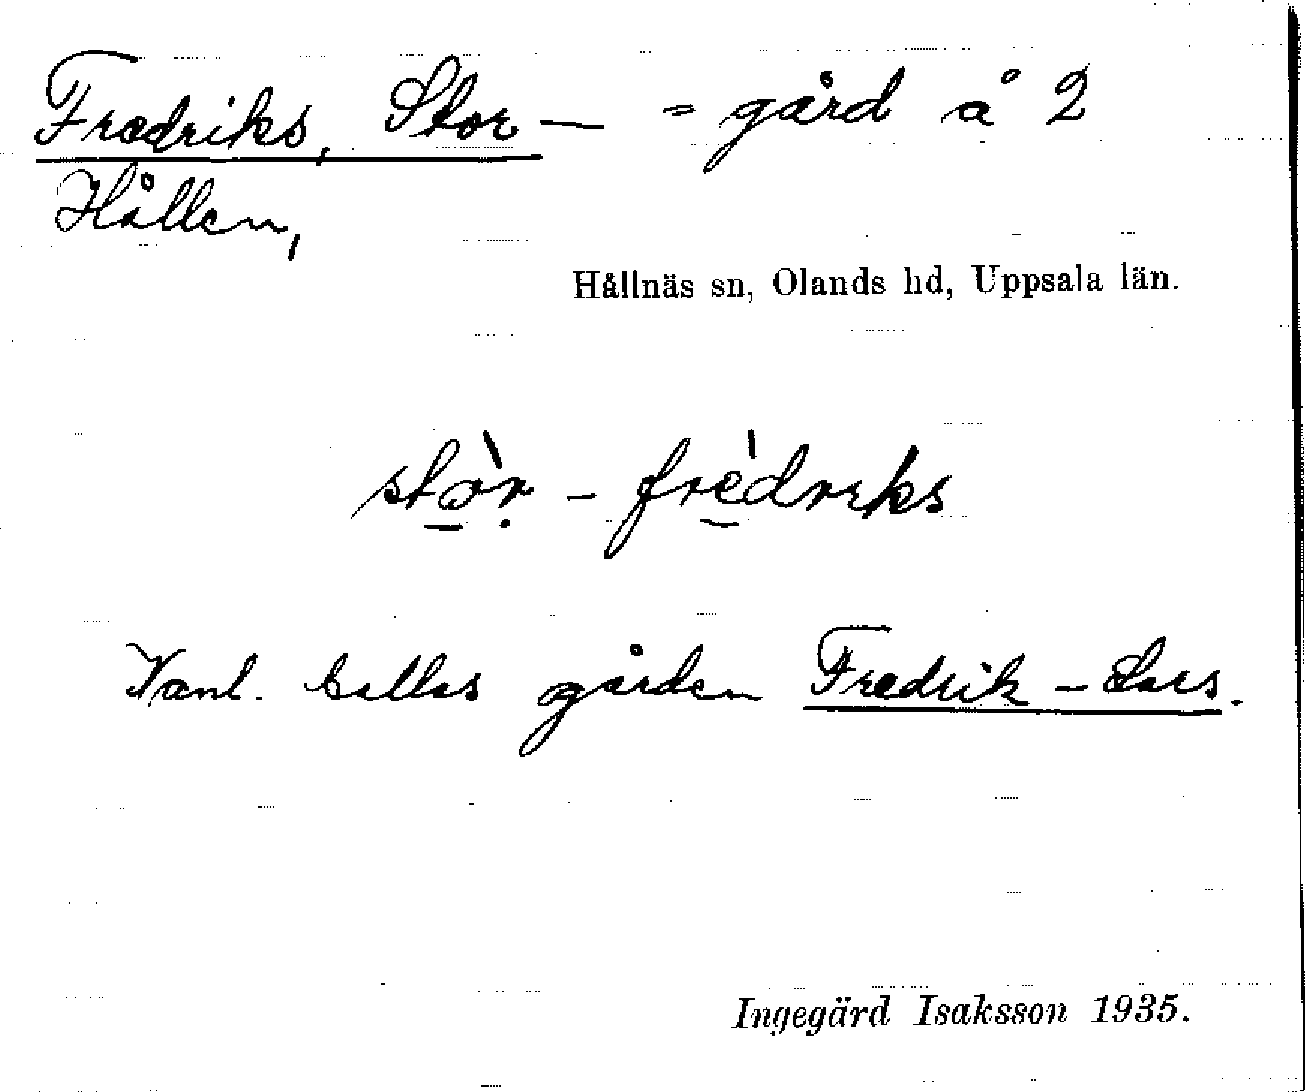 Fredriks, Stor- = gård å 2
Hållen,
Hållnäs sn, Olands hd, Uppsala län.
stò̱ṛ - fre̱̍dreks
Vanl. kallas gården Fredrik-Lars.
Ingegärd Isaksson 1935.